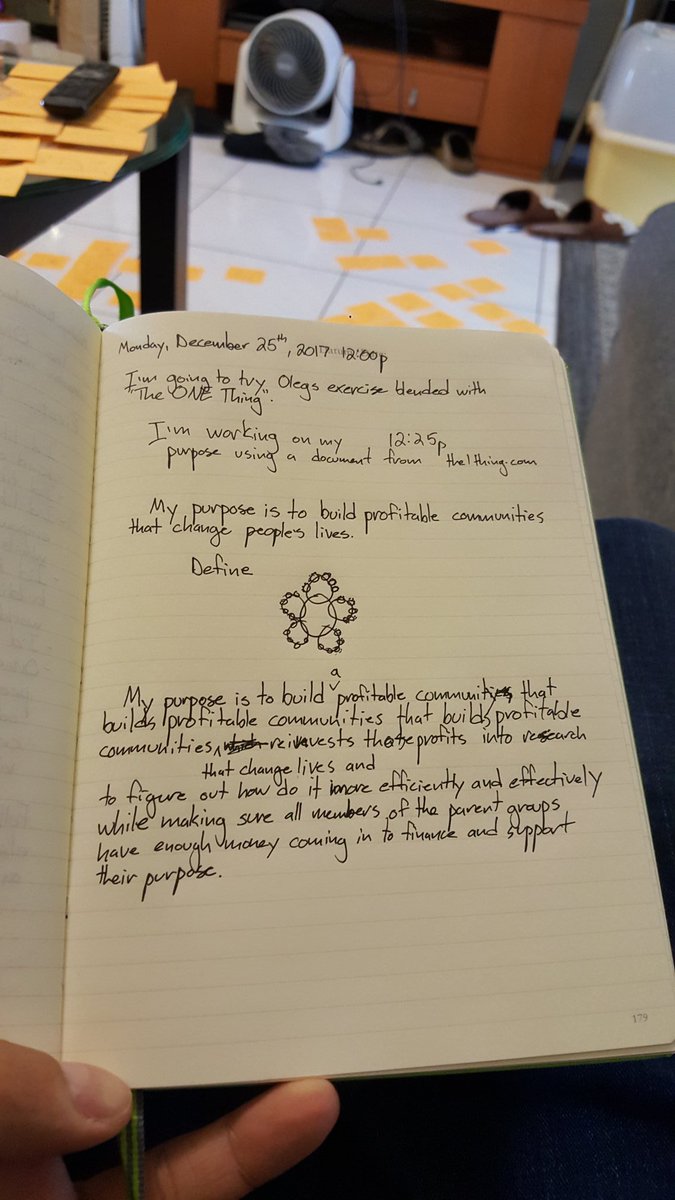 Monday, December 25th, 2017 12:00p
I'm going to try Olegs exercise blended with
"The ONE Thing".
I'm working on my 12:25p
purpose using a document from the1thing.com
My purpose is to build profitable communities
that change people's lives.
Define
a
My purpose is to build profitable communities that
builds profitable communities that builds profitable
communities, reinvests those profits into research
that change lives and
to figure out how do it more efficiently and effectively
while making sure all members of the parent groups
have enough money coming in to finance and support
their purpose.
179